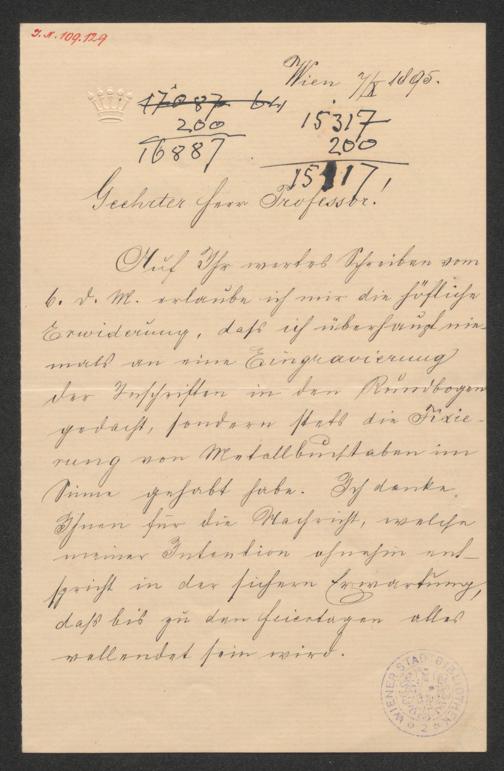 J.N. 109.129
Wien 7/X 1895.
17087 64
200
16887
15317
200
15117
Geehrter Herr Professor!
Auf Ihr wertes Schreiben vom
6. d. M. erlaube ich mir die höfliche
Erwiderung, daß ich überhaupt nie-
mals an eine Eingravierung
der Inschriften in den Rundbogen
gedacht, sondern stets die Fixie-
rung von Metallbuchstaben im
Sinne gehabt habe. Ich danke
Ihnen für die Nachricht, welche
meiner Intention ohnehin ent-
spricht in der sichern Erwartung,
daß bis zu den Feiertagen alles
vollendet sein wird.
WIENER STADTBIBLIOTHEK
2